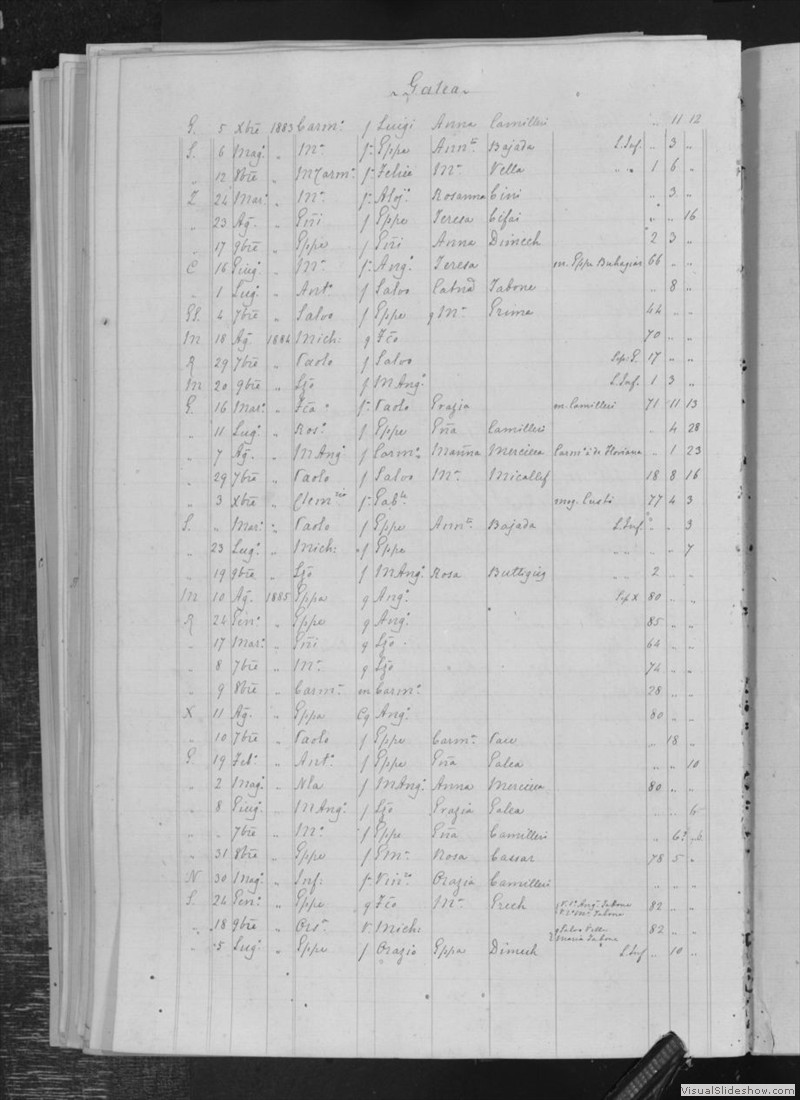 Galea
G. 5 Xbre 1883 Carm. f Luigi Anna Camilleri „ 11 12
S. 6 Mag. „ M. f. Eppe Ann. Bajada S. Inf. „ 3 „
„ 12 8bre „ M Carm. f. Felice M. Vella „ „ 1 6 „
Z 24 Mar. „ M. f. Aloj. Rosanna Cini „ 3 „
„ 23 Ag. „ Gñi f Eppe Teresa Cifai „ „ 16
„ 17 9bre „ Eppe f Gñi Anna Dimech 2 3 „
C 16 Giug. „ M. f. Ang. Teresa m. Eppe Buhagiar 66 „ „
„ 1 Lug. „ Ant. f Salvo Catnd Tabone „ 8 „
4 7bre „ Salvo f Eppe q M. Grima 44 „ „
M 18 Ag. 1884 Mich: q Fco 70 „ „
R 29 7bre „ Paolo f Salvo Sep. G. 17 „ „
M 20 9bre „ Lzo f M Ang. S. Inf. 1 3 „
G. 16 Mar. „ Fca f. Paolo Grazia m. Camilleri 71 11 13
„ 11 Lug. „ Ros. f Eppe Gña Camilleri „ 4 28
„ 7 Ag. „ M Ang. f Carm. Marina Mercieca Carm. di Floriana „ 1 23
„ 29 7bre „ Paolo f Salvo M. Micallef 18 8 16
„ 3 Xbre „ Clem. f. Gab. mog. Custo 77 4 3
S. „ Mar. „ Paolo f Eppe Ann. Bajada S. Inf. „ „ 3
„ 23 Lug. „ Mich: f Eppe „ „ „ 7
„ 19 9bre „ Lzo f M Ang. Rosa Buttigieg „ „ 2 „ „
M 10 Ag. 1885 Eppa q Ang. Sep X 80 „ „
R 24 Gen. „ Eppe q Ang. 85 „ „
„ 17 Mar. „ Gñi q Lzo 64 „ „
„ 8 7bre „ M. q Lzo 74 „ „
„ 9 8bre „ Carm. m Carm. 28 „ „
X 11 Ag. „ Eppa Cq Ang. 80 „ „
„ 10 7bre „ Paolo f Eppe Carm. Pace „ 18 „
G. 19 Feb. „ Ant. f Eppe Gña Galea „ „ 10
„ 2 Mag. „ Nla f M Ang. Anna Mercieca 80 „ „
„ 8 Giug. „ M Ang. f Lzo Grazia Galea „ „ 6
„ „ 7bre „ M. f Eppe Gña Camilleri
„ 31 8bre „ Eppe f Gm. Rosa Cassar 78 5 „
N 30 Mag. „ Inf: f. Vin. Grazia Camilleri „ „ „
S. 24 Gen. „ Eppe q Fco M. Grech Ang. Tabone 82 „ „
M. Tabone
„ 18 9bre „ Crs. V. Mich: q Salvo Vella 82 „ „
Maria Tabone
„ 5 Lug. „ Eppe f Orazio Eppa Dimech S. Inf „ 10 „
VisualSlideshow.com